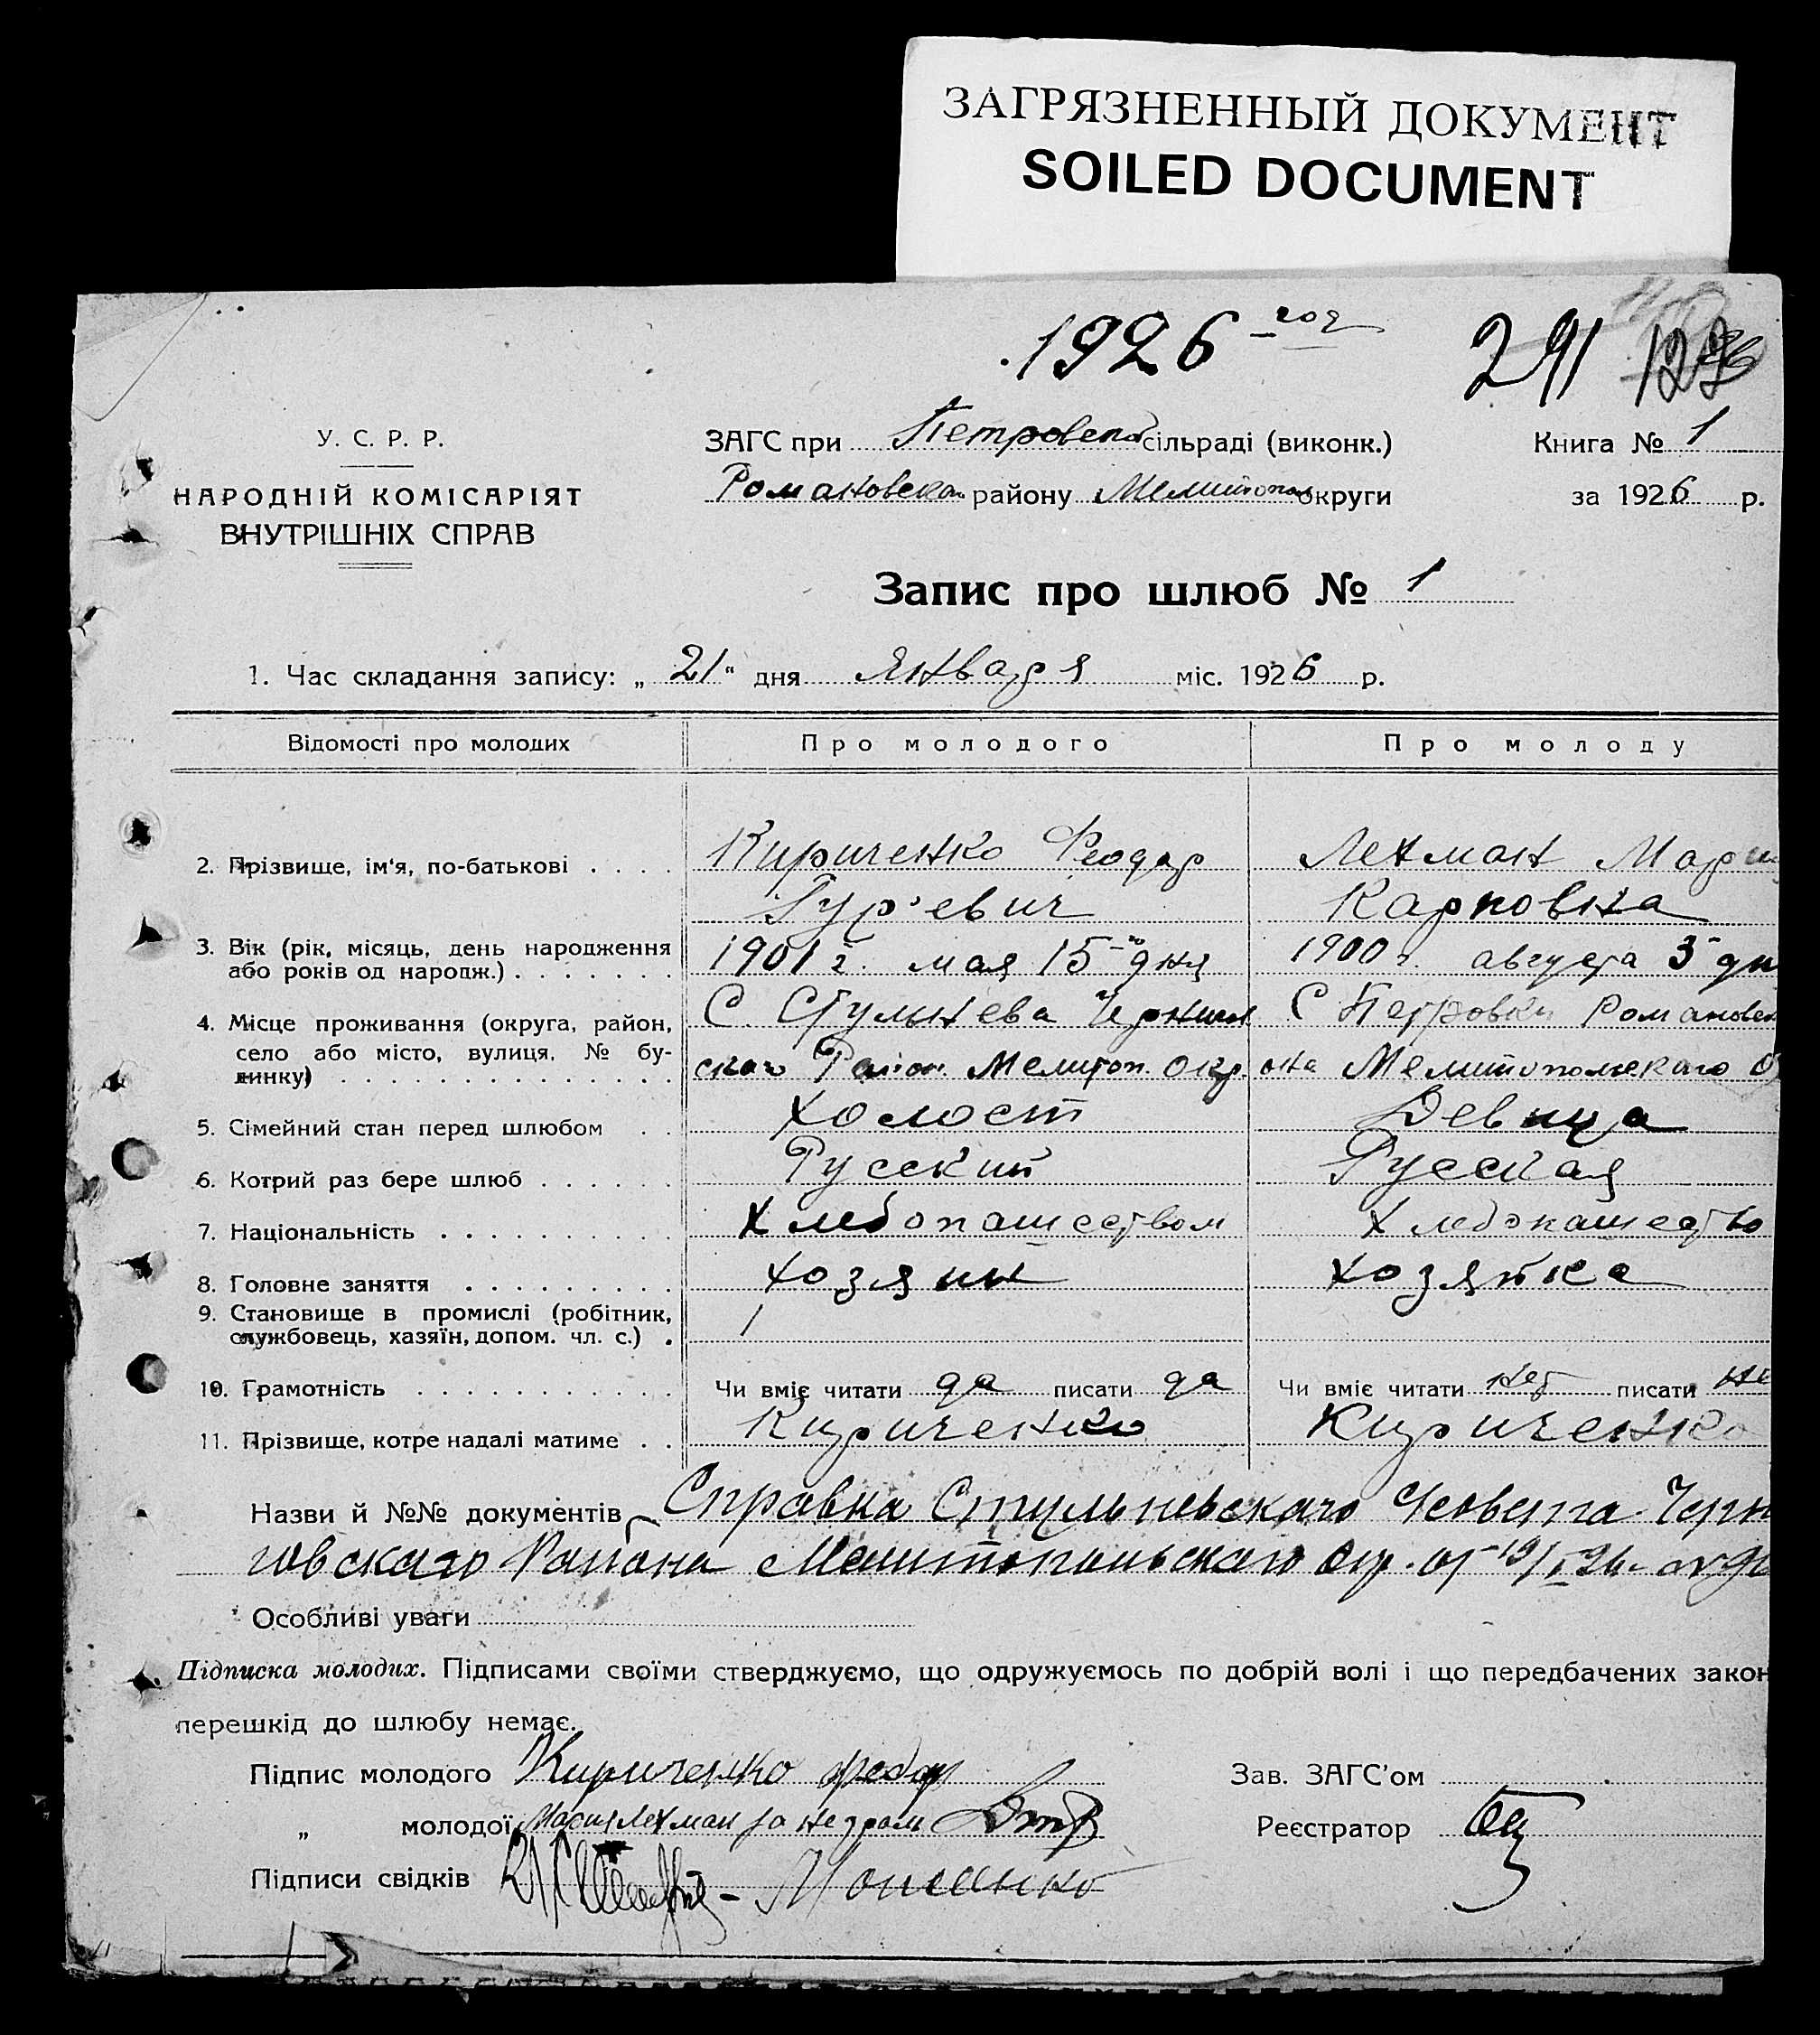 ЗАГРЯЗНЕННЫЙ ДОКУМЕНТ
SOILED DOCUMENT
1926 год
291
У. С. Р. Р.
НАРОДНІЙ КОМІСАРІЯТ
ВНУТРІШНІХ СПРАВ
ЗАГС при Петровской сільраді (виконк.)
Романовскаго району Мелитопол округи
Книга № 1
за 1926 р.
Запис про шлюб № 1
1. Час складання запису: „21“ дня Января міс. 1926 р.
Відомості про молодих Про молодого Про молоду
2. Прізвище, ім‘я, по-батькові . . . . Кириченко Феодор Гур'евич Лехман Мари Карповна
3. Вік (рік, місяць, день народження або років од народж.) . . . . . . . 1901 г. мая 15-го дня 1900 г. августа 3 дн
4. Місце проживання (округа, район, село або місто, вулиця, № будинку) . . . . С. Стульнева Чернигскаго Район. Мелитоп. Окр. С Петровки Романовск она Мелитопольскаго О
5. Сімейний стан перед шлюбом . . Холост Девица
6. Котрий раз бере шлюб . . . . . . Русский Русская
7. Національність . . . . . . . . . . Хлебопашеством Хлебопашество
8. Головне заняття . . . . . . . . . Хозяин Хозяйка
9. Становище в промислі (робітник, службовець, хазяїн, допом. чл. с.) .
10. Грамотність . . . . . . . . . . . Чи вміє читати да писати да Чи вміє читати нет писати не
11. Прізвище, котре надалі матиме . . Кириченко Кириченко
Назви й №№ документів Справка Стульневскаго Черн
говскаго Района Мелитопольскаго Окр. от 19/I 26
Особливі уваги
Підписка молодих. Підписами своїми стверджуємо, що одружуємось по добрій волі і що передбачених закон
перешкід до шлюбу немає.
Підпис молодого Кириченко Федор
Зав. ЗАГС’ом
„ молодої Мария Лехман за неграм
Реєстратор
Підписи свідків